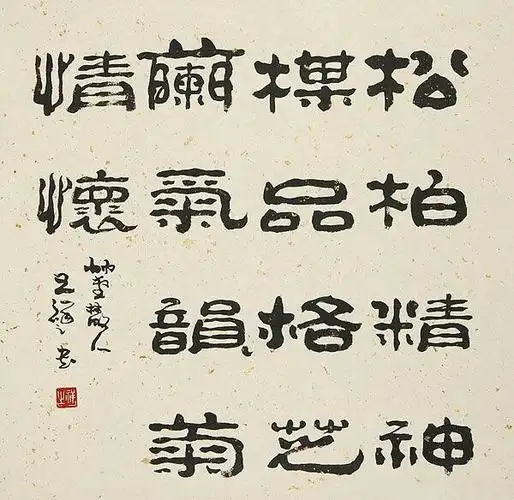 松柏精神
楳品格芝
蘭氣韻菊
情懷